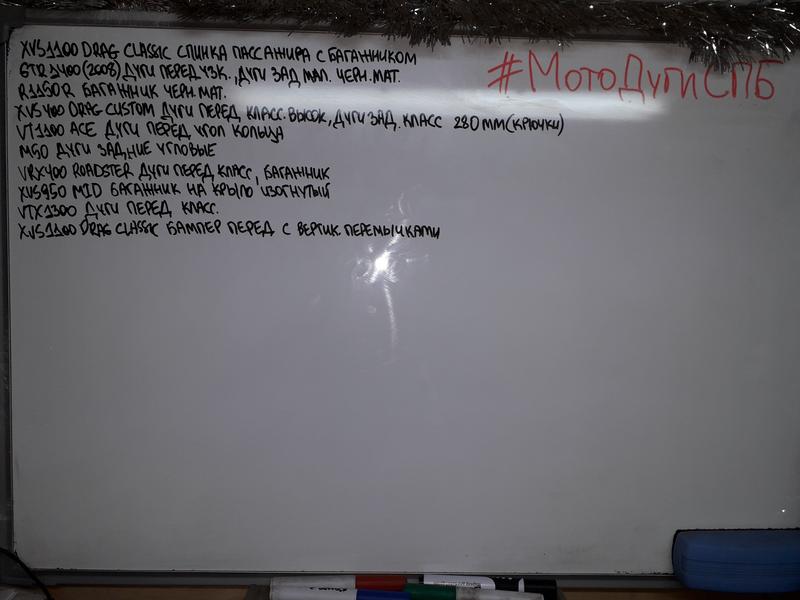 XVS1100 DRAG CLASSIC СПИНКА ПАССАЖИРА С БАГАЖНИКОМ
#МотоДугиСПБ
GTR1400(2008) ДУГИ ПЕРЕД УЗК., ДУГИ ЗАД МАЛ. ЧЕРН.МАТ.
R1150R БАГАЖНИК ЧЕРН.МАТ.
XVS400 DRAG CUSTOM ДУГИ ПЕРЕД КЛАСС.ВЫСОК, ДУГИ ЗАД. КЛАСС 280ММ(КРЮЧКИ)
VT1100 ACE ДУГИ ПЕРЕД УГОЛ КОЛЬЦА
M50 ДУГИ ЗАДНИЕ УГЛОВЫЕ
VRX400 ROADSTER ДУГИ ПЕРЕД КЛАСС, БАГАЖНИК
XVS950 MID БАГАЖНИК НА КРЫЛО ИЗОГНУТЫЙ
VTX1300 ДУГИ ПЕРЕД КЛАСС.
XVS1100 DRAG CLASSIC БАМПЕР ПЕРЕД С ВЕРТИК. ПЕРЕМЫЧКАМИ